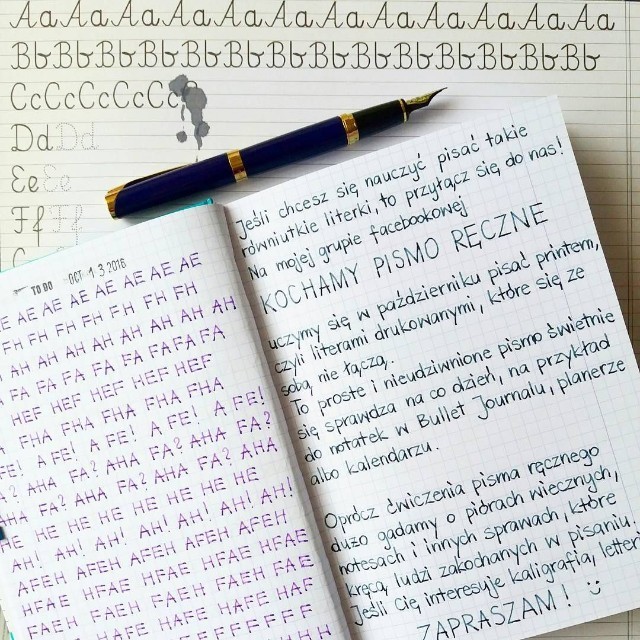 Aa Aa Aa Aa Aa Aa Aa Aa Aa Aa Aa Aa Aa
Bb Bb Bb Bb Bb Bb Bb Bb Bb Bb Bb Bb
Cc Cc Cc Cc Cc Cc
Dd Dd
Ee Ee
Ff Ff
TO DO OCT 1 3 2016
AE AE AE AE AE AE AE
FH FH FH FH FH FH FH
AH AH AH AH AH AH AH AH
FA FA FA FA FA FA FA FA
HEF HEF HEF HEF HEF
FHA FHA FHA FHA FHA
A FE! A FE! A FE! A FE!
AHA FA? AHA FA? AHA FA?
FA? AHA FA? AHA FA? AHA
HE HE HE HE HE HE HE
AH! AH! AH! AH! AH! AH! AH!
AFEH AFEH AFEH AFEH AFEH
HFAE HFAE HFAE HFAE HFAE
FAEH FAEH FAEH FAEH
HAFE HAFE HAFE HAF
Jeśli chcesz się nauczyć pisać takie
równiutkie literki, to przyłącz się do nas!
Na mojej grupie facebookowej
KOCHAMY PISMO RĘCZNE
uczymy się w październiku pisać printem,
czyli literami drukowanymi, które się ze
sobą nie łączą.
To proste i nieudziwnione pismo świetnie
się sprawdza na co dzień, na przykład
do notatek w Bullet Journalu, planerze
albo kalendarzu.
Oprócz ćwiczenia pisma ręcznego
dużo gadamy o piórach wiecznych,
notesach i innych sprawach, które
kręcą ludzi zakochanych w pisaniu.
Jeśli Cię interesuje kaligrafia, letteri
ZAPRASZAM! :)